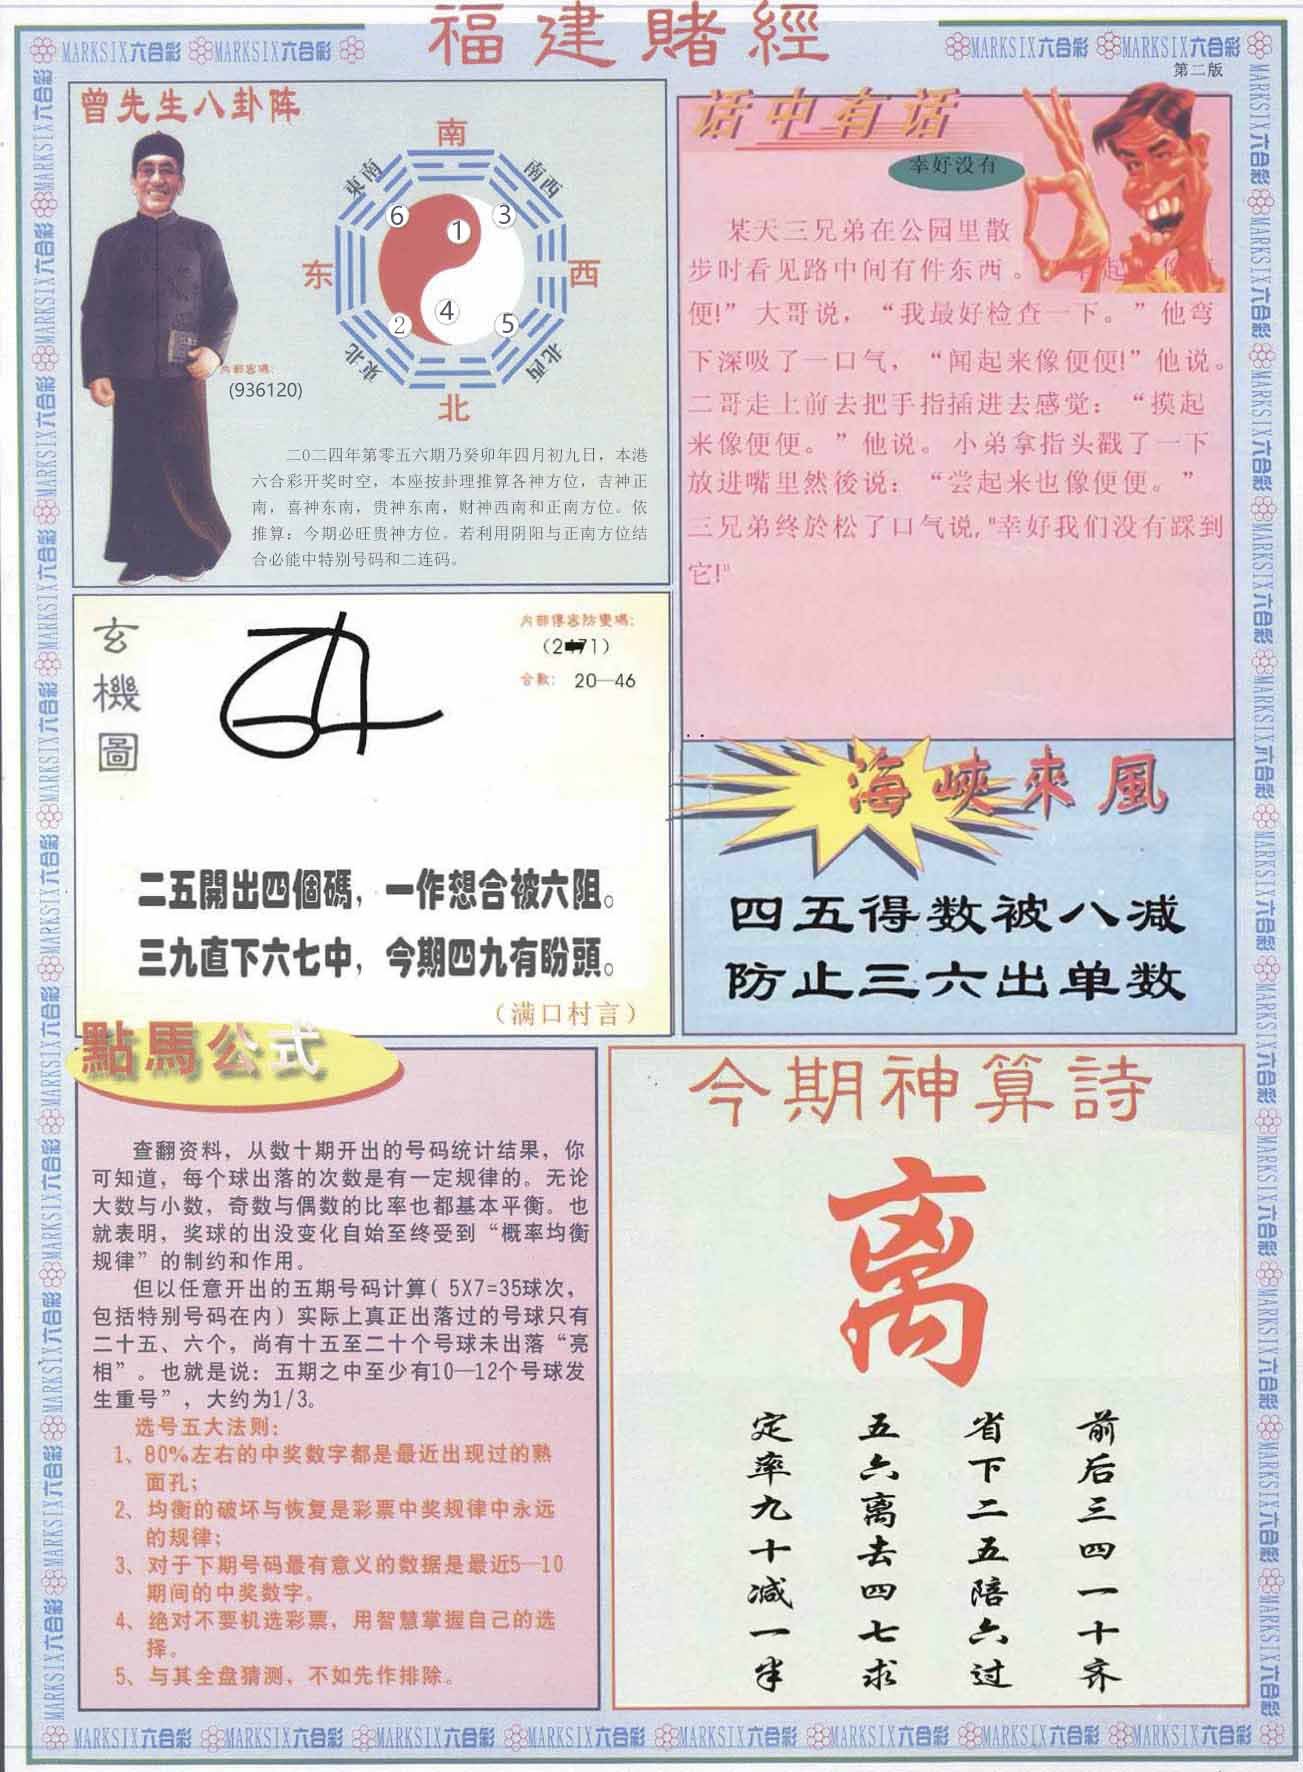 福建賭經
MARKSIX六合彩 MARKSIX六合彩
MARKSIX六合彩 MARKSIX六合彩
第二版
曾先生八卦阵
南
東南
南西
6
1
3
东
西
2
4
5
東北
北西
北
内部密碼:
(936120)
二0二四年第零五六期乃癸卯年四月初九日，本港
六合彩开奖时空，本座按卦理推算各神方位，吉神正
南，喜神东南，贵神东南，财神西南和正南方位。依
推算：今期必旺贵神方位。若利用阴阳与正南方位结
合必能中特别号码和二连码。
话中有话
幸好没有
某天三兄弟在公园里散
步时看见路中间有件东西。
便!”大哥说，“我最好检查一下。”他弯
下深吸了一口气，“闻起来像便便!”他说。
二哥走上前去把手指插进去感觉：“摸起
来像便便。”他说。小弟拿指头戳了一下
放进嘴里然後说：“尝起来也像便便。”
三兄弟终於松了口气说,"幸好我们没有踩到
它!"
玄機圖
内部傳密防變碼:
71)
合數: 20—46
二五開出四個碼，一作想合被六阻。
三九直下六七中，今期四九有盼頭。
（满口村言）
海峽來風
四五得数被八减
防止三六出单数
點馬公式
查翻资料，从数十期开出的号码统计结果，你
可知道，每个球出落的次数是有一定规律的。无论
大数与小数，奇数与偶数的比率也都基本平衡。也
就表明，奖球的出没变化自始至终受到“概率均衡
规律”的制约和作用。
但以任意开出的五期号码计算( 5X7=35球次，
包括特别号码在内）实际上真正出落过的号球只有
二十五、六个，尚有十五至二十个号球未出落“亮
相”。也就是说：五期之中至少有10—12个号球发
生重号”，大约为1/3。
选号五大法则:
1、80%左右的中奖数字都是最近出现过的熟
面孔;
2、均衡的破坏与恢复是彩票中奖规律中永远
的规律;
3、对于下期号码最有意义的数据是最近5—10
期间的中奖数字。
4、绝对不要机选彩票，用智慧掌握自己的选
择。
5、与其全盘猜测，不如先作排除。
今期神算詩
离
前后三四一十齐
省下二五陪六过
五六离去四七求
定率九十减一半
MARKSIX六合彩 MARKSIX六合彩 MARKSIX六合彩 MARKSIX六合彩 MARKSIX六合彩 MARKSIX六合彩 MARKSIX六合彩 MARKSIX六合彩